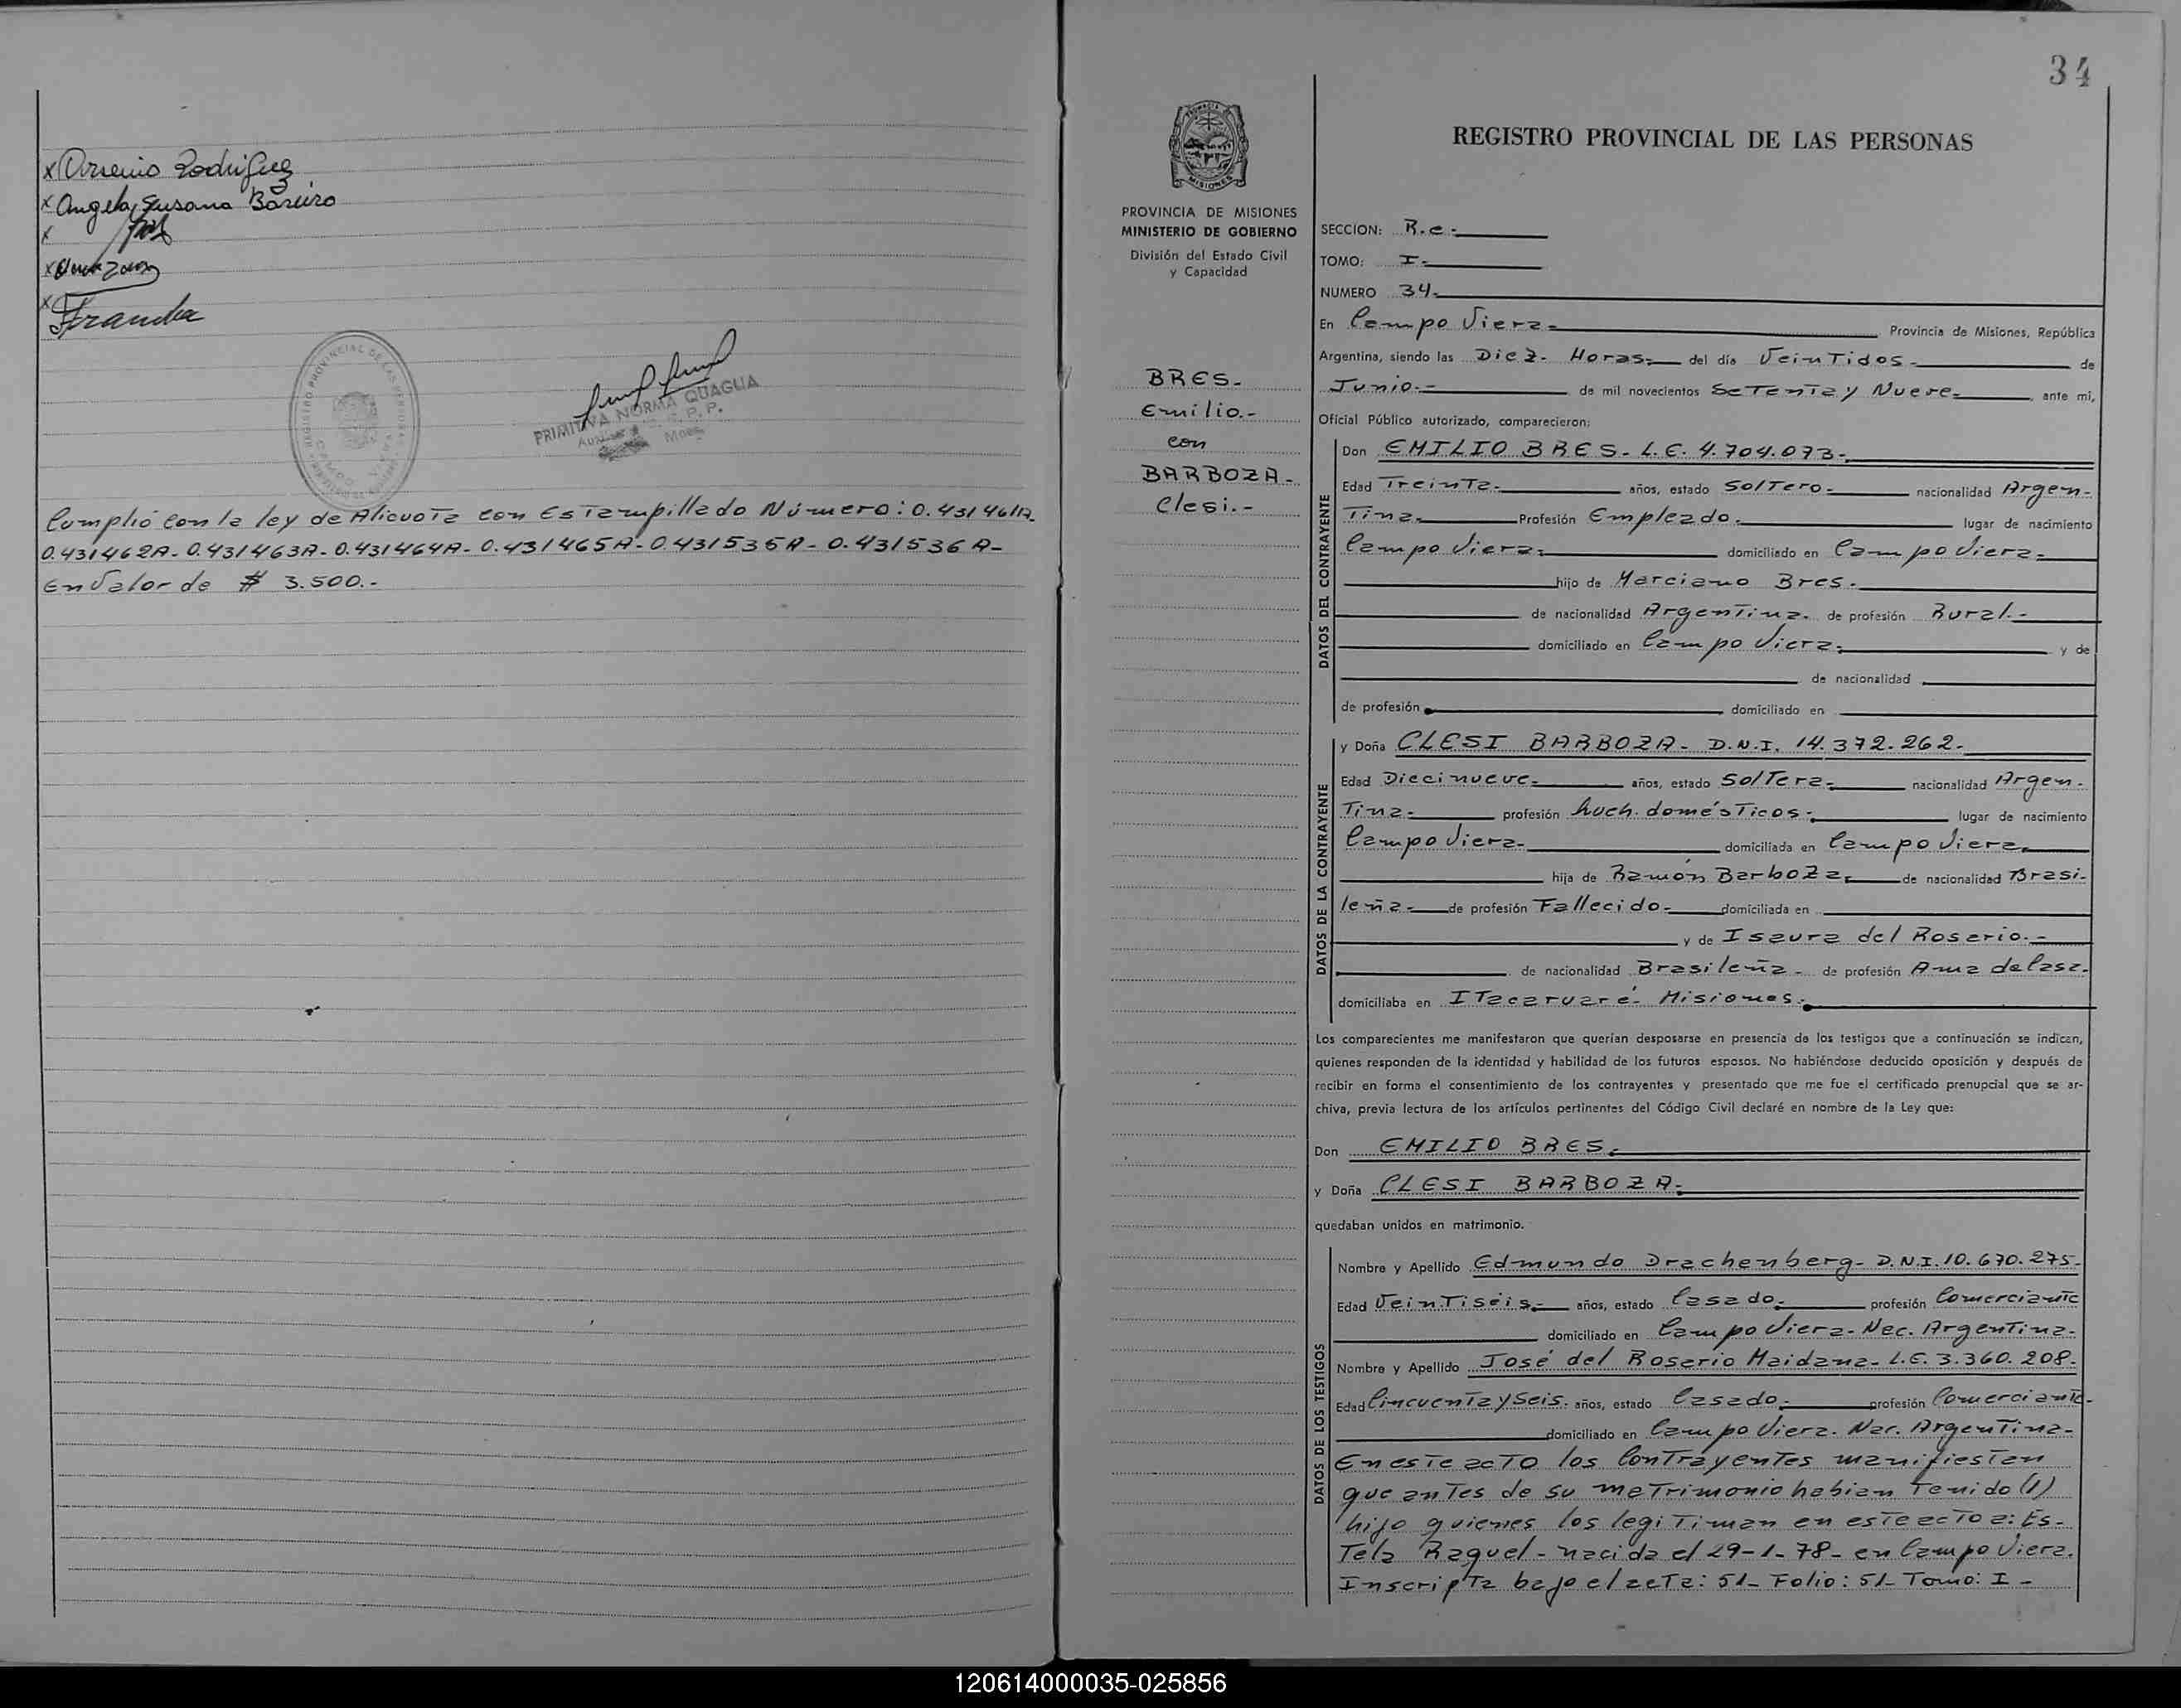 x Arsenio Rodriguez
x Angela Susana Bareiro
x
x
x
PRIMITIVA NORMA QUAGLIA
Cumplió con la ley de Alicuota con Estampillado Número: 0.431461A-
0.431462A- 0.431463A- 0.431464A- 0.431465A- 0.431535A- 0.431536A-
En Valor de $ 3.500.-
34
PROVINCIA DE MISIONES
MINISTERIO DE GOBIERNO
División del Estado Civil
y Capacidad
BRES.-
Emilio.-
con
BARBOZA.-
Clesi.-
REGISTRO PROVINCIAL DE LAS PERSONAS
SECCION: R.c.-
TOMO: I-
NUMERO 34.-
En Campo Viera- Provincia de Misiones, República
Argentina, siendo las Diez- Horas- del día Veintidos- de
Junio.- de mil novecientos Setenta y Nueve- ante mi,
Oficial Público autorizado, comparecieron:
DATOS DEL CONTRAYENTE
Don EMILIO BRES- L.E. 4.704.073-
Edad Treinta- años, estado Soltero- nacionalidad Argen-
tina- Profesión Empleado- lugar de nacimiento
Campo Viera- domiciliado en Campo Viera-
hijo de Marciano Bres-
de nacionalidad Argentina- de profesión Rural.-
domiciliado en Campo Viera- y de
de nacionalidad
de profesión domiciliado en
DATOS DE LA CONTRAYENTE
y Doña CLESI BARBOZA- D.N.I. 14.372.262-
Edad Diecinueve- años, estado Soltera- nacionalidad Argen-
tina- profesión Queh. domésticos- lugar de nacimiento
Campo Viera- domiciliada en Campo Viera-
hija de Ramón Barboza- de nacionalidad Brasi-
leña- de profesión Fallecido- domiciliada en
y de Isaura del Rosario.-
de nacionalidad Brasileña- de profesión Ama de Casa-
domiciliaba en Itacaruaré- Misiones-
Los comparecientes me manifestaron que querían desposarse en presencia de los testigos que a continuación se indican,
quienes responden de la identidad y habilidad de los futuros esposos. No habiéndose deducido oposición y después de
recibir en forma el consentimiento de los contrayentes y presentado que me fue el certificado prenupcial que se ar-
chiva, previa lectura de los artículos pertinentes del Código Civil declaré en nombre de la Ley que:
Don EMILIO BRES-
y Doña CLESI BARBOZA-
quedaban unidos en matrimonio.
DATOS DE LOS TESTIGOS
Nombre y Apellido Edmundo Drachenberg- D.N.I. 10.670.275-
Edad Veintiseis- años, estado Casado- profesión Comerciante
domiciliado en Campo Viera- Nac. Argentina-
Nombre y Apellido José del Rosario Maidana- L.E. 3.360.208-
Edad Cincuenta y Seis- años, estado Casado- profesión Comerciante-
domiciliado en Campo Viera. Nac. Argentina-
En este acto los Contrayentes manifiestan
que antes de su matrimonio habian Tenido (1)
hijo quienes los legitiman en este acto a: Es-
tela Raquel- nacida el 29-1-78- en Campo Viera.
Inscripta bajo el acta: 51- Folio: 51- Tomo: I-
120614000035-025856